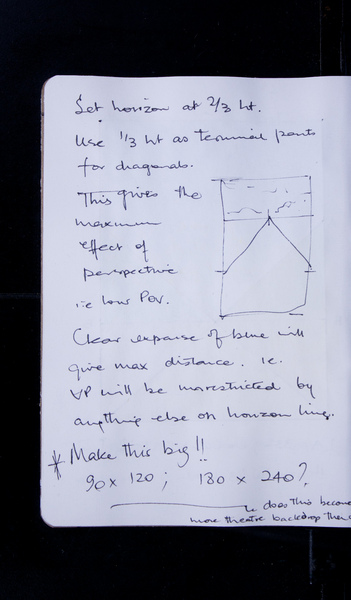 Set horizon at 2/3 ht.
Use 1/3 ht as terminal points
for diagonals.
This gives the
maximum
effect of
perspective
i.e low POV.
Clear expanse of blue will
give max distance. i.e.
VP will be unrestricted by
anything else on horizon line.
* Make this big!!
90 x 120 ; 180 x 240?
does this become
more theatre backdrop than